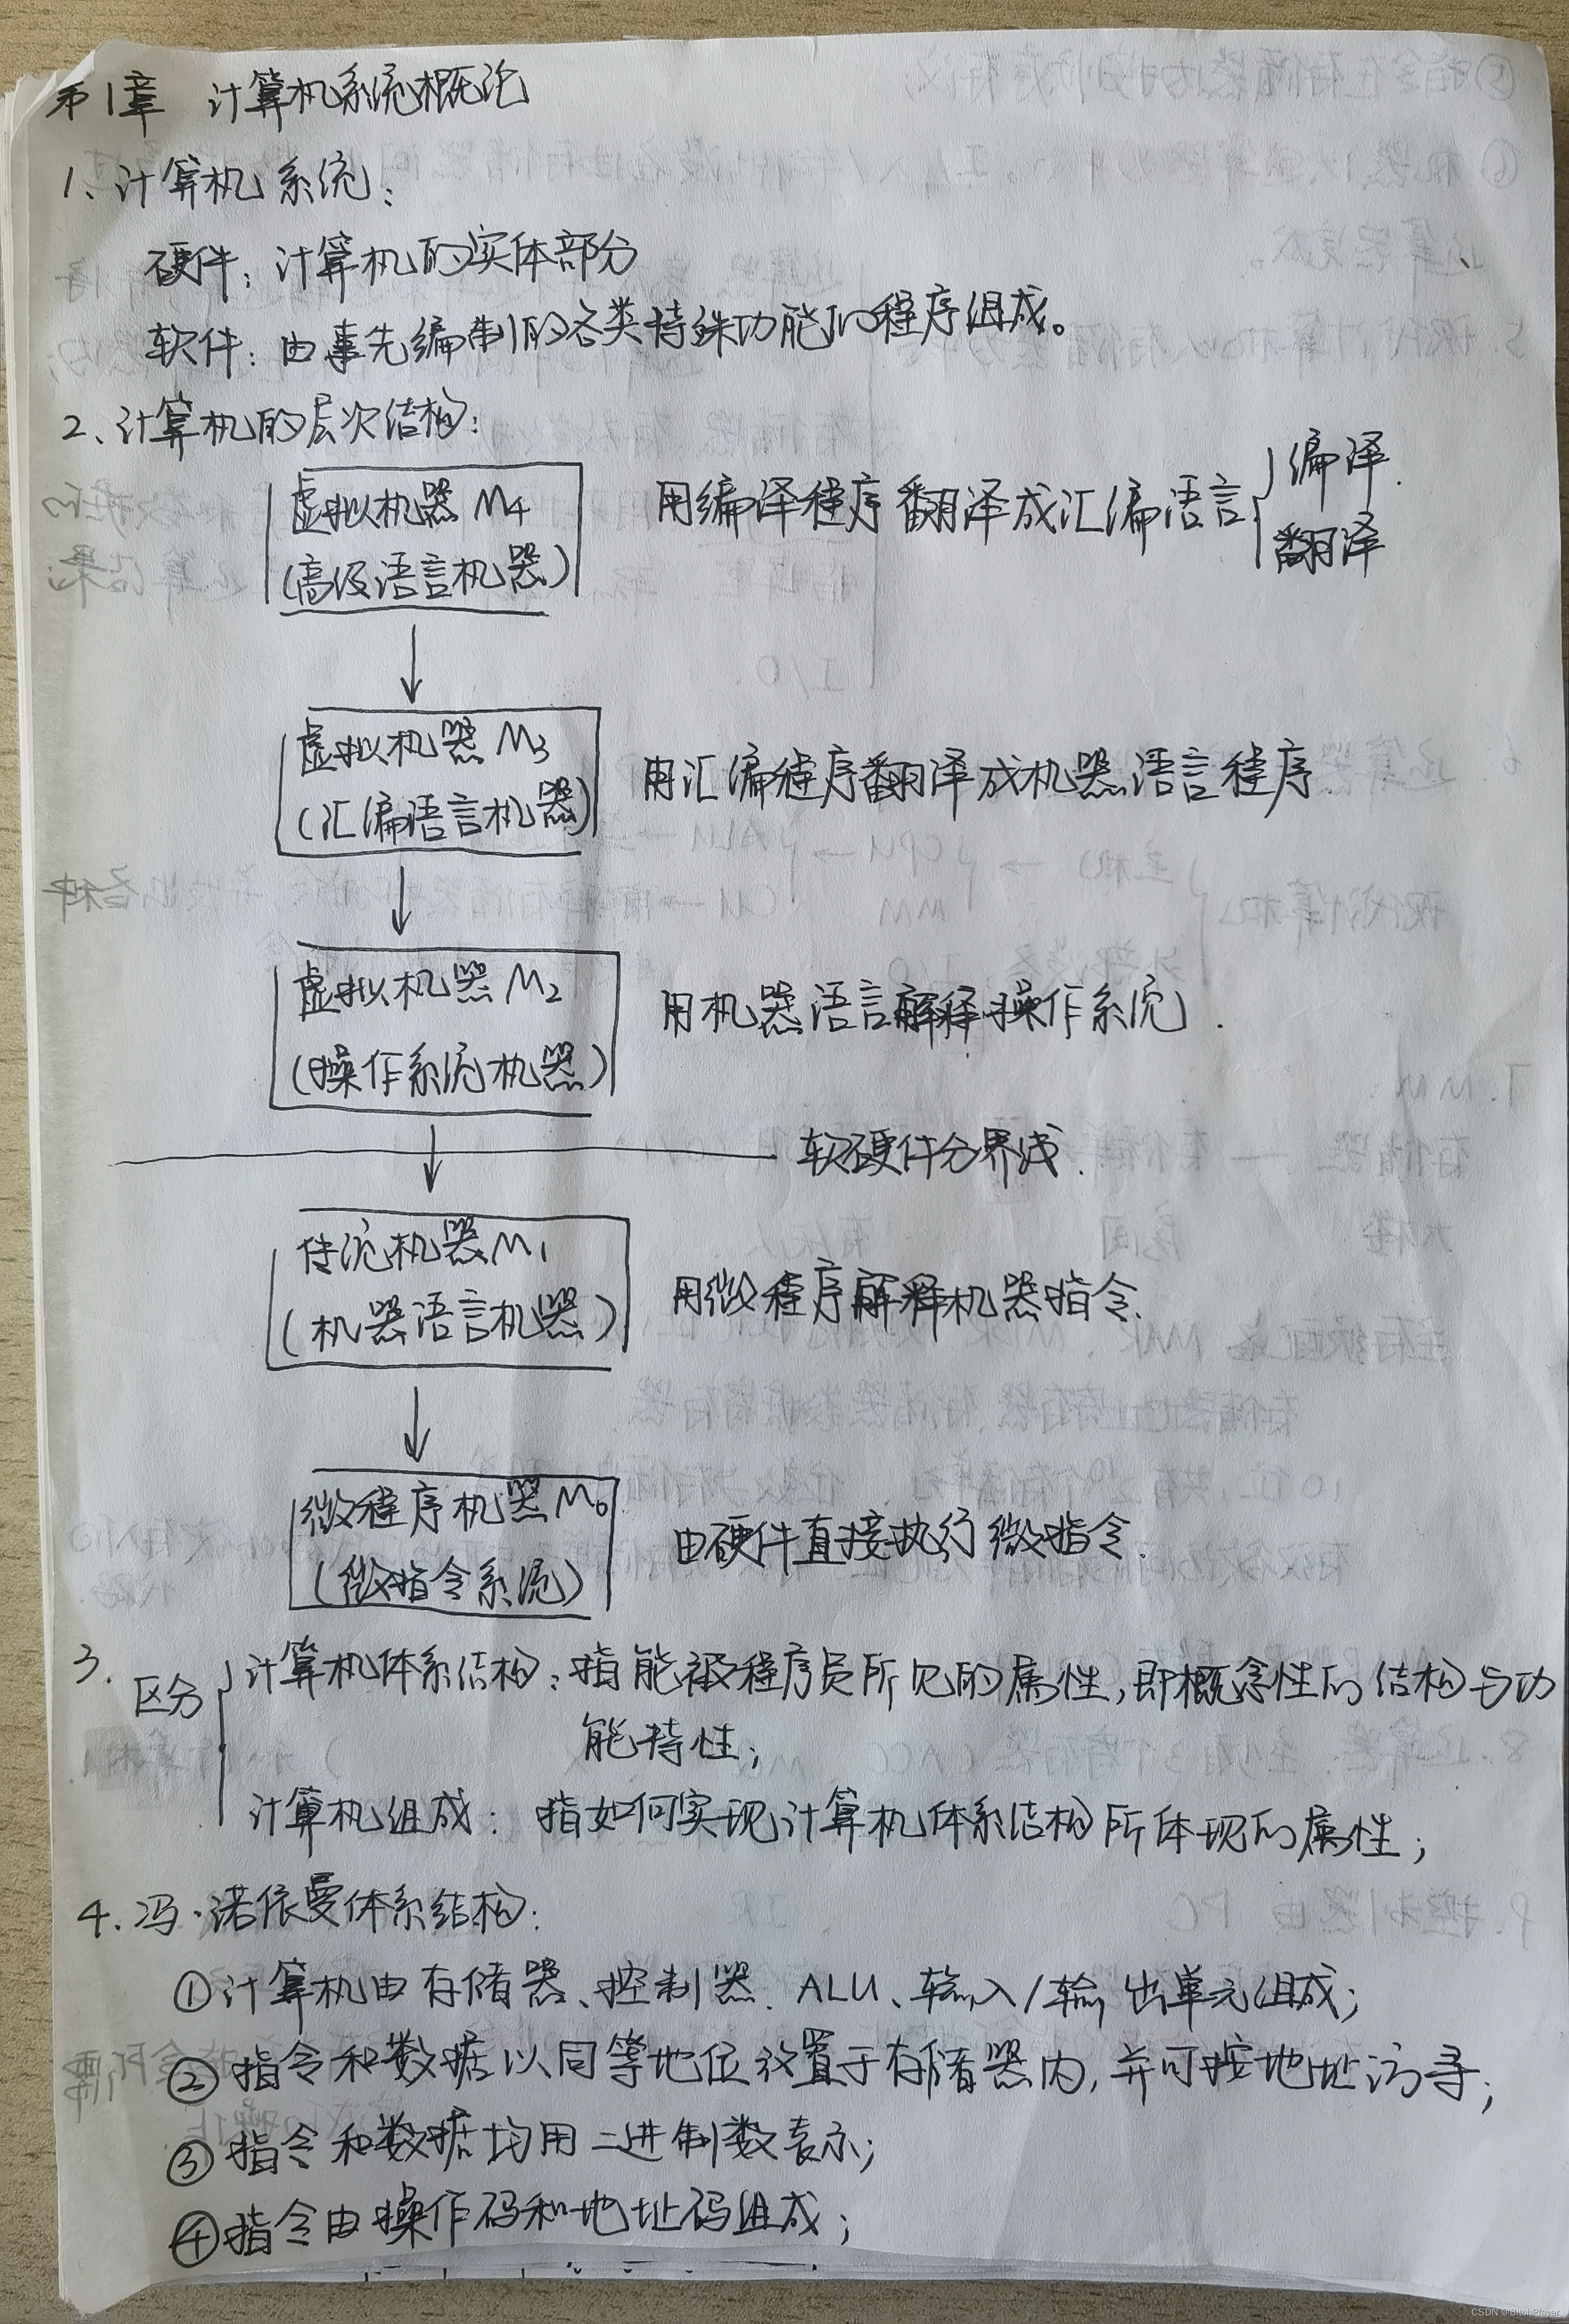 第1章 计算机系统概论
1、计算机系统:
硬件: 计算机的实体部分
软件: 由事先编制的各类特殊功能的程序组成。
2、计算机的层次结构:
虚拟机器M4
(高级语言机器)
用编译程序翻译成汇编语言
编译.
翻译
虚拟机器M3
(汇编语言机器)
用汇编程序翻译成机器语言程序.
虚拟机器M2
(操作系统机器)
用机器语言解释操作系统.
软硬件分界线.
传统机器M1
(机器语言机器)
用微程序解释机器指令.
微程序机器M0
(微指令系统)
由硬件直接执行微指令.
3. 区分
计算机体系结构: 指能被程序员所见的属性,即概念性的结构与功
能特性;
计算机组成: 指如何实现计算机体系结构所体现的属性;
4. 冯·诺依曼体系结构:
①计算机由存储器、控制器、ALU、输入/输出单元组成;
②指令和数据以同等地位放置于存储器内,并可按地址访寻;
③指令和数据均用二进制数表示;
④指令由操作码和地址码组成;
CSDN @BitchPlayer